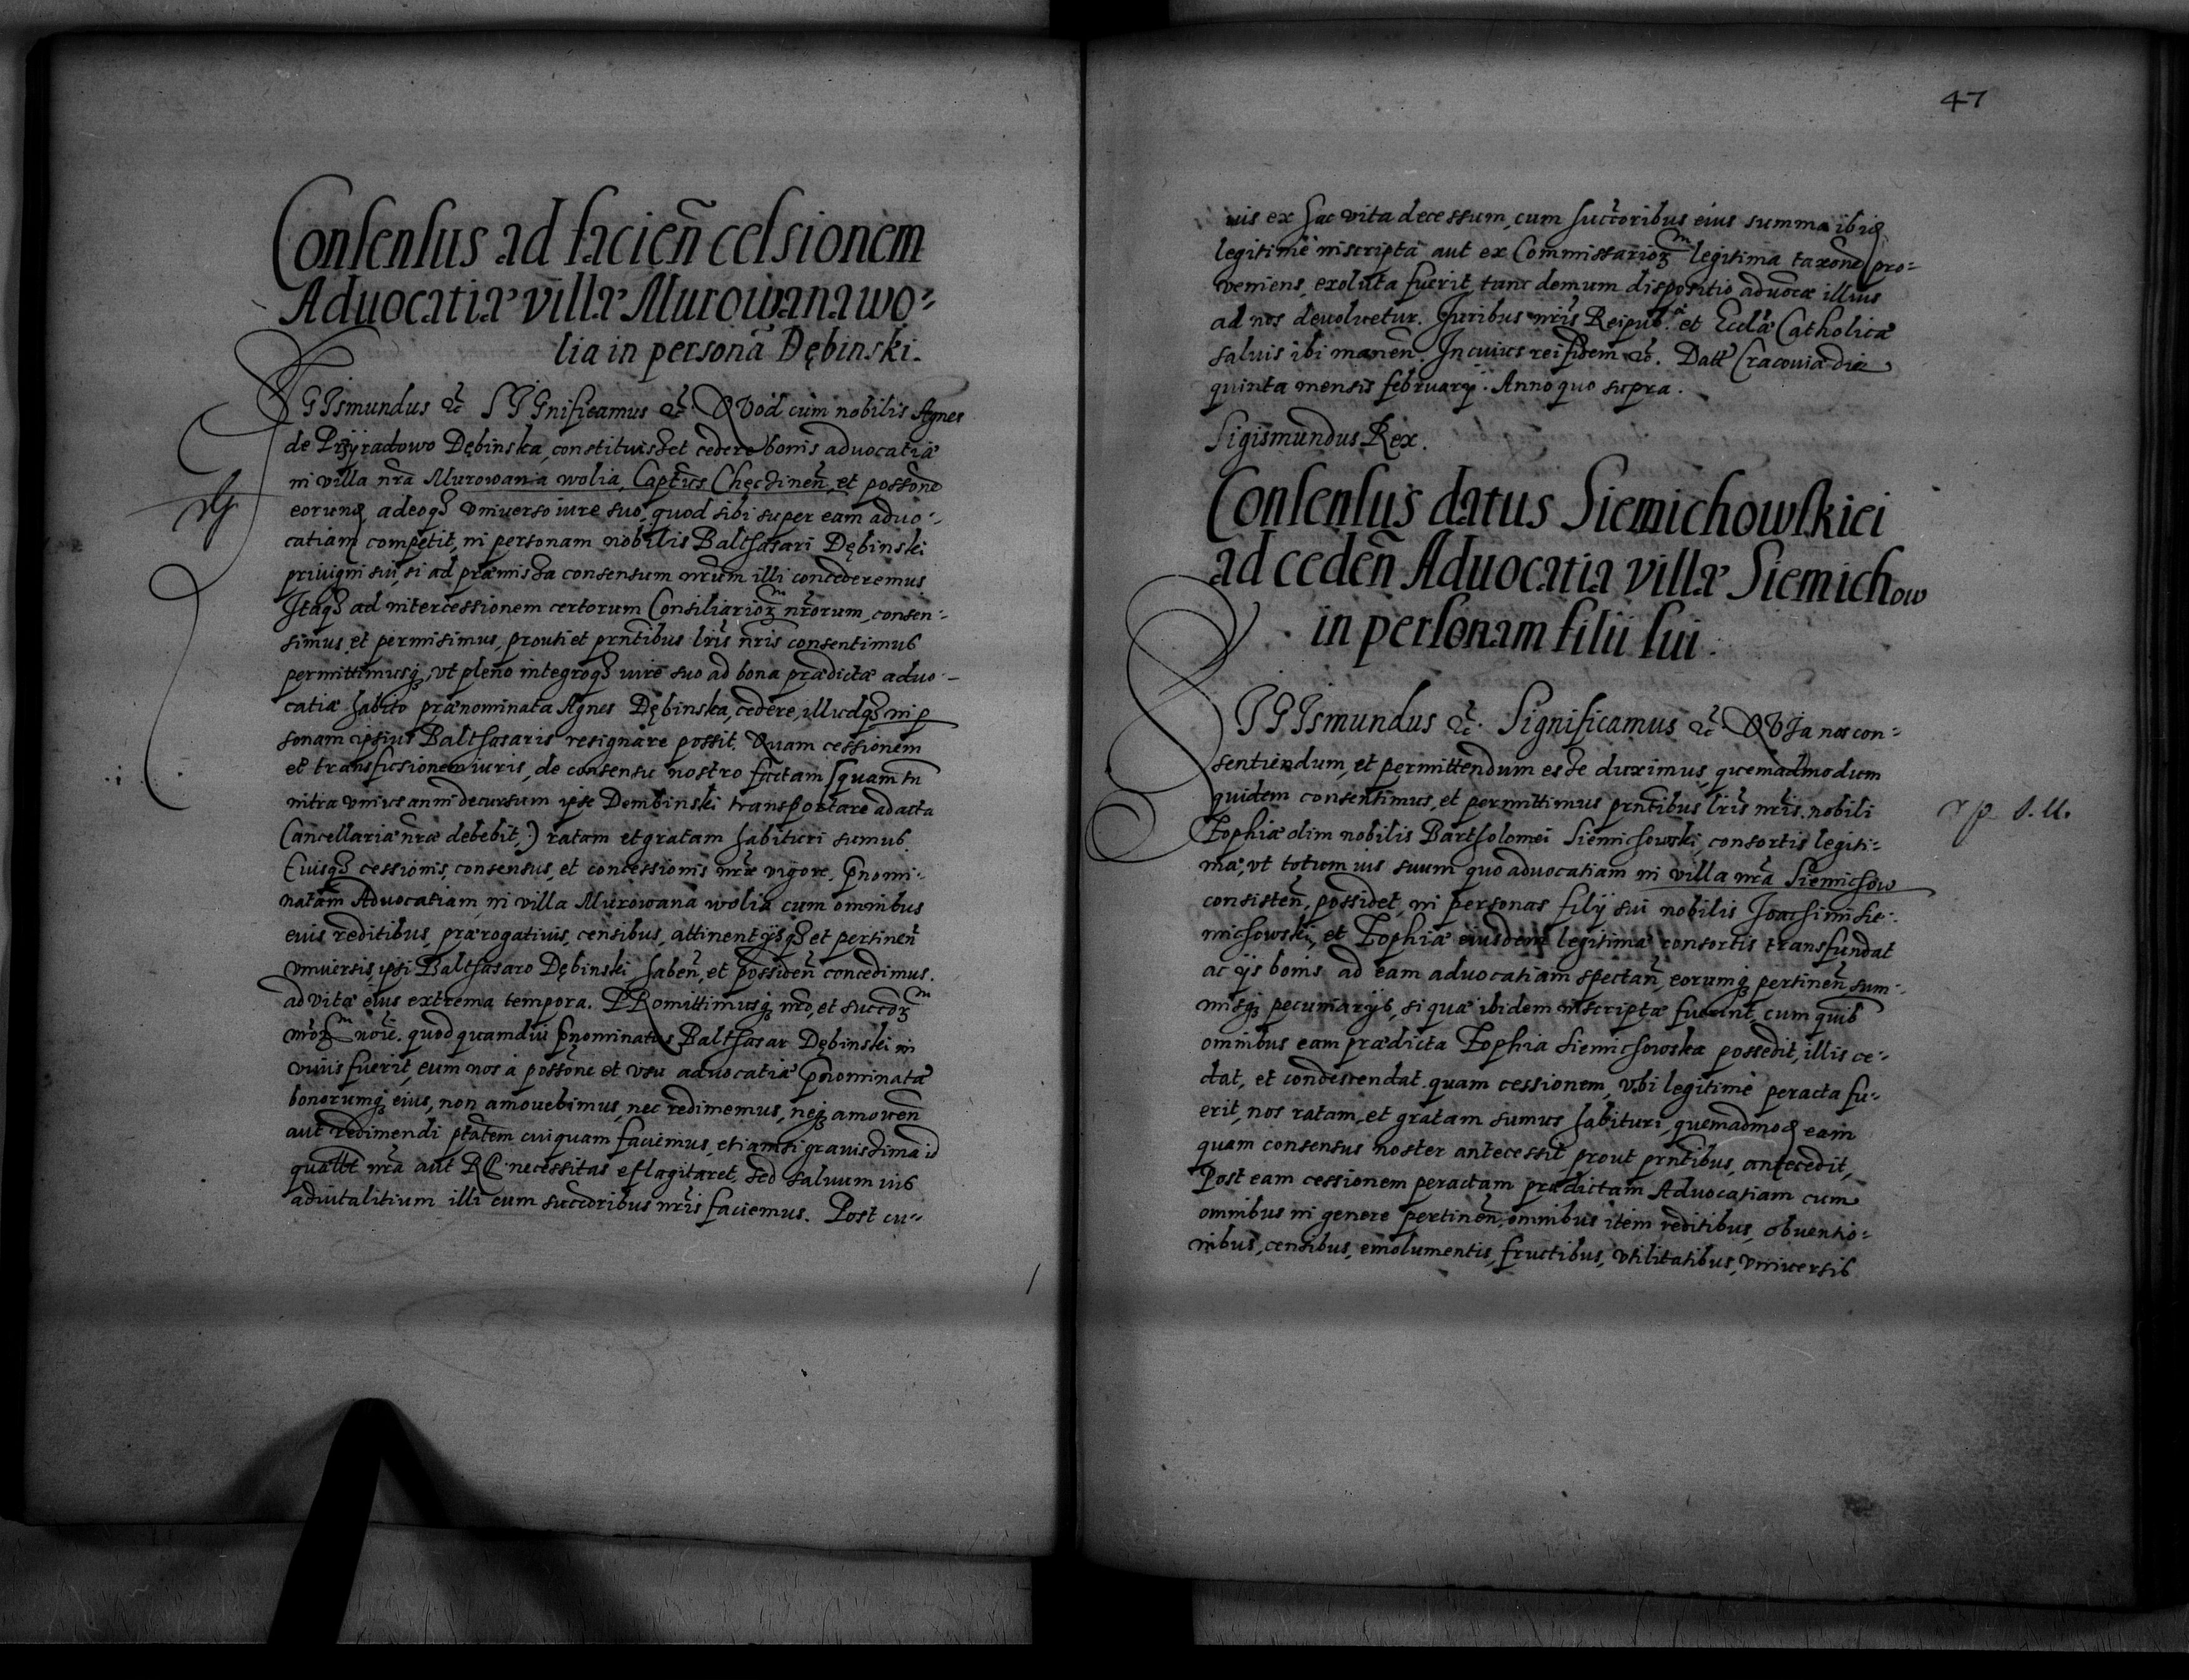 Consensus ad facien̄ cessionem
Aduocatiæ villæ Murowana wo=
lia in personā Dębinski.
SIGIsmundus &c̃ SIGnificamus &c̃. QVod cum nobilis Agnes
de Przyradowo Dębinska, constituisset cedere bonis aduocatiæ
in villa nrã Murowana wolia, Captũs Chęcinen̄, et possone
eorund, adeoq3 vniuerso iure suo, quod sibi super eam aduo=
catiam competit, in personam nobilis Balthasari Dębinski
priuigni sui, si ad præmissa consensum nrũm illi concederemus.
Itaq3 ad intercessionem certorum Consiliarioꝝ nrõrum, consen=
simus et permisimus, prouti et prñtibus lrĩs nrĩs consentimus
permittimusq3, vt pleno integroq3 iure suo ad bona prædictæ aduo=
catiæ habito prænominata Agnes Dębinska, cedere, illudq3 in p
sonam ipsius Balthasaris resignare possit. Quam cessionem
et transfusionem iuris, de consensu nostro factam (quam tñ
intra vnius anni decursum ipse Dembinski transportare ad acta
Cancellariæ nrãe debebit,) ratam et gratam habituri sumus.
Cuiusq3 cessionis, consensus, et concessionis nrãe vigore, p̄nomi=
natam Aduocatiam in villa Murowana wolia cum omnibus
euis reditibus, prærogatiuis, censibus, attinentijsq3 et pertinen̄
vniuersis, ipsi Balthasaro Dębinski haben̄, et possiden̄ concedimus.
ad vitæ eius extrema tempora. PRomittimusq3 nrõ, et succõꝝ
nrõꝝ noĩe. quod quamdiu p̄nominatus Balthasar Dębinski in
viuis fuerit, eum nos à possone et vsu aduocatiæ p̄nominatæ
bonorumq3 eius, non amouebimus, nec redimemus, neq3 amouen̄
aut redimendi ptãtem cuiquam faciemus, etiamsi grauissima id
nrã aut RP. necessitas eflagitaret, sed saluum ius
aduitalitium illi cum succõribus nrĩs faciemus. Post cu=
47
ius ex hac vita decessum, cum succõribus eius summa ibid
legitimè inscripta aut ex Commissarioꝝ legitima taxone pro=
veniens, exoluta fuerit, tunc demum dispositio aduocæ illius
ad nos deuoluetur. Iuribus nrĩs Reipub. et Ecclæ Catholicæ
saluis ibi manen̄. In cuius rei fidem &c̃. Datt Cracouiæ die
quinta mensis february. Anno quo supra.
Sigismundus Rex.
Consensus datus Siemichowskiei
ad ceden̄ Aduocatia villæ Siemichow
in personam filii sui.
SIGIsmundus &c̃. Significamus &c̃ QVIa nos con=
sentiendum, et permittendum esse duximus, quemadmodum
quidem consentimus, et permittimus prñtibus lrĩs nrĩs. nobili
Zophiæ olim nobilis Bartholomei Siemichowski, consortis legiti=
mæ, vt totum ius suum quo aduocatiam in villa nrã Siemichow
consisten̄, possidet, in personas filij sui nobilis Ioachimi Sie=
michowski, et Zophiæ eiusdem legitimæ consortis transfundat
ac ijs bonis ad eam aduocatiam spectan̄, eorumq3 pertinen̄ sum=
misq3 pecuniarijs, si quæ ibidem inscriptæ fuerint, cum quib
omnibus eam prædicta Zophia Siemichowska possedit, illis ce=
dat, et condescendat. quam cessionem, vbi legitimè peracta fu=
erit, nos ratam, et gratam sumus habituri, quemadmod eam
quam consensus noster antecessit, prout prñtibus, antecedit,
Post eam cessionem peractam prædictam Aduocatiam cum
omnibus in genere pertinen̄, omnibus item reditibus, obuentio=
nibus, censibus, emolumentis, fructibus, vtilitatibus, vniuersis